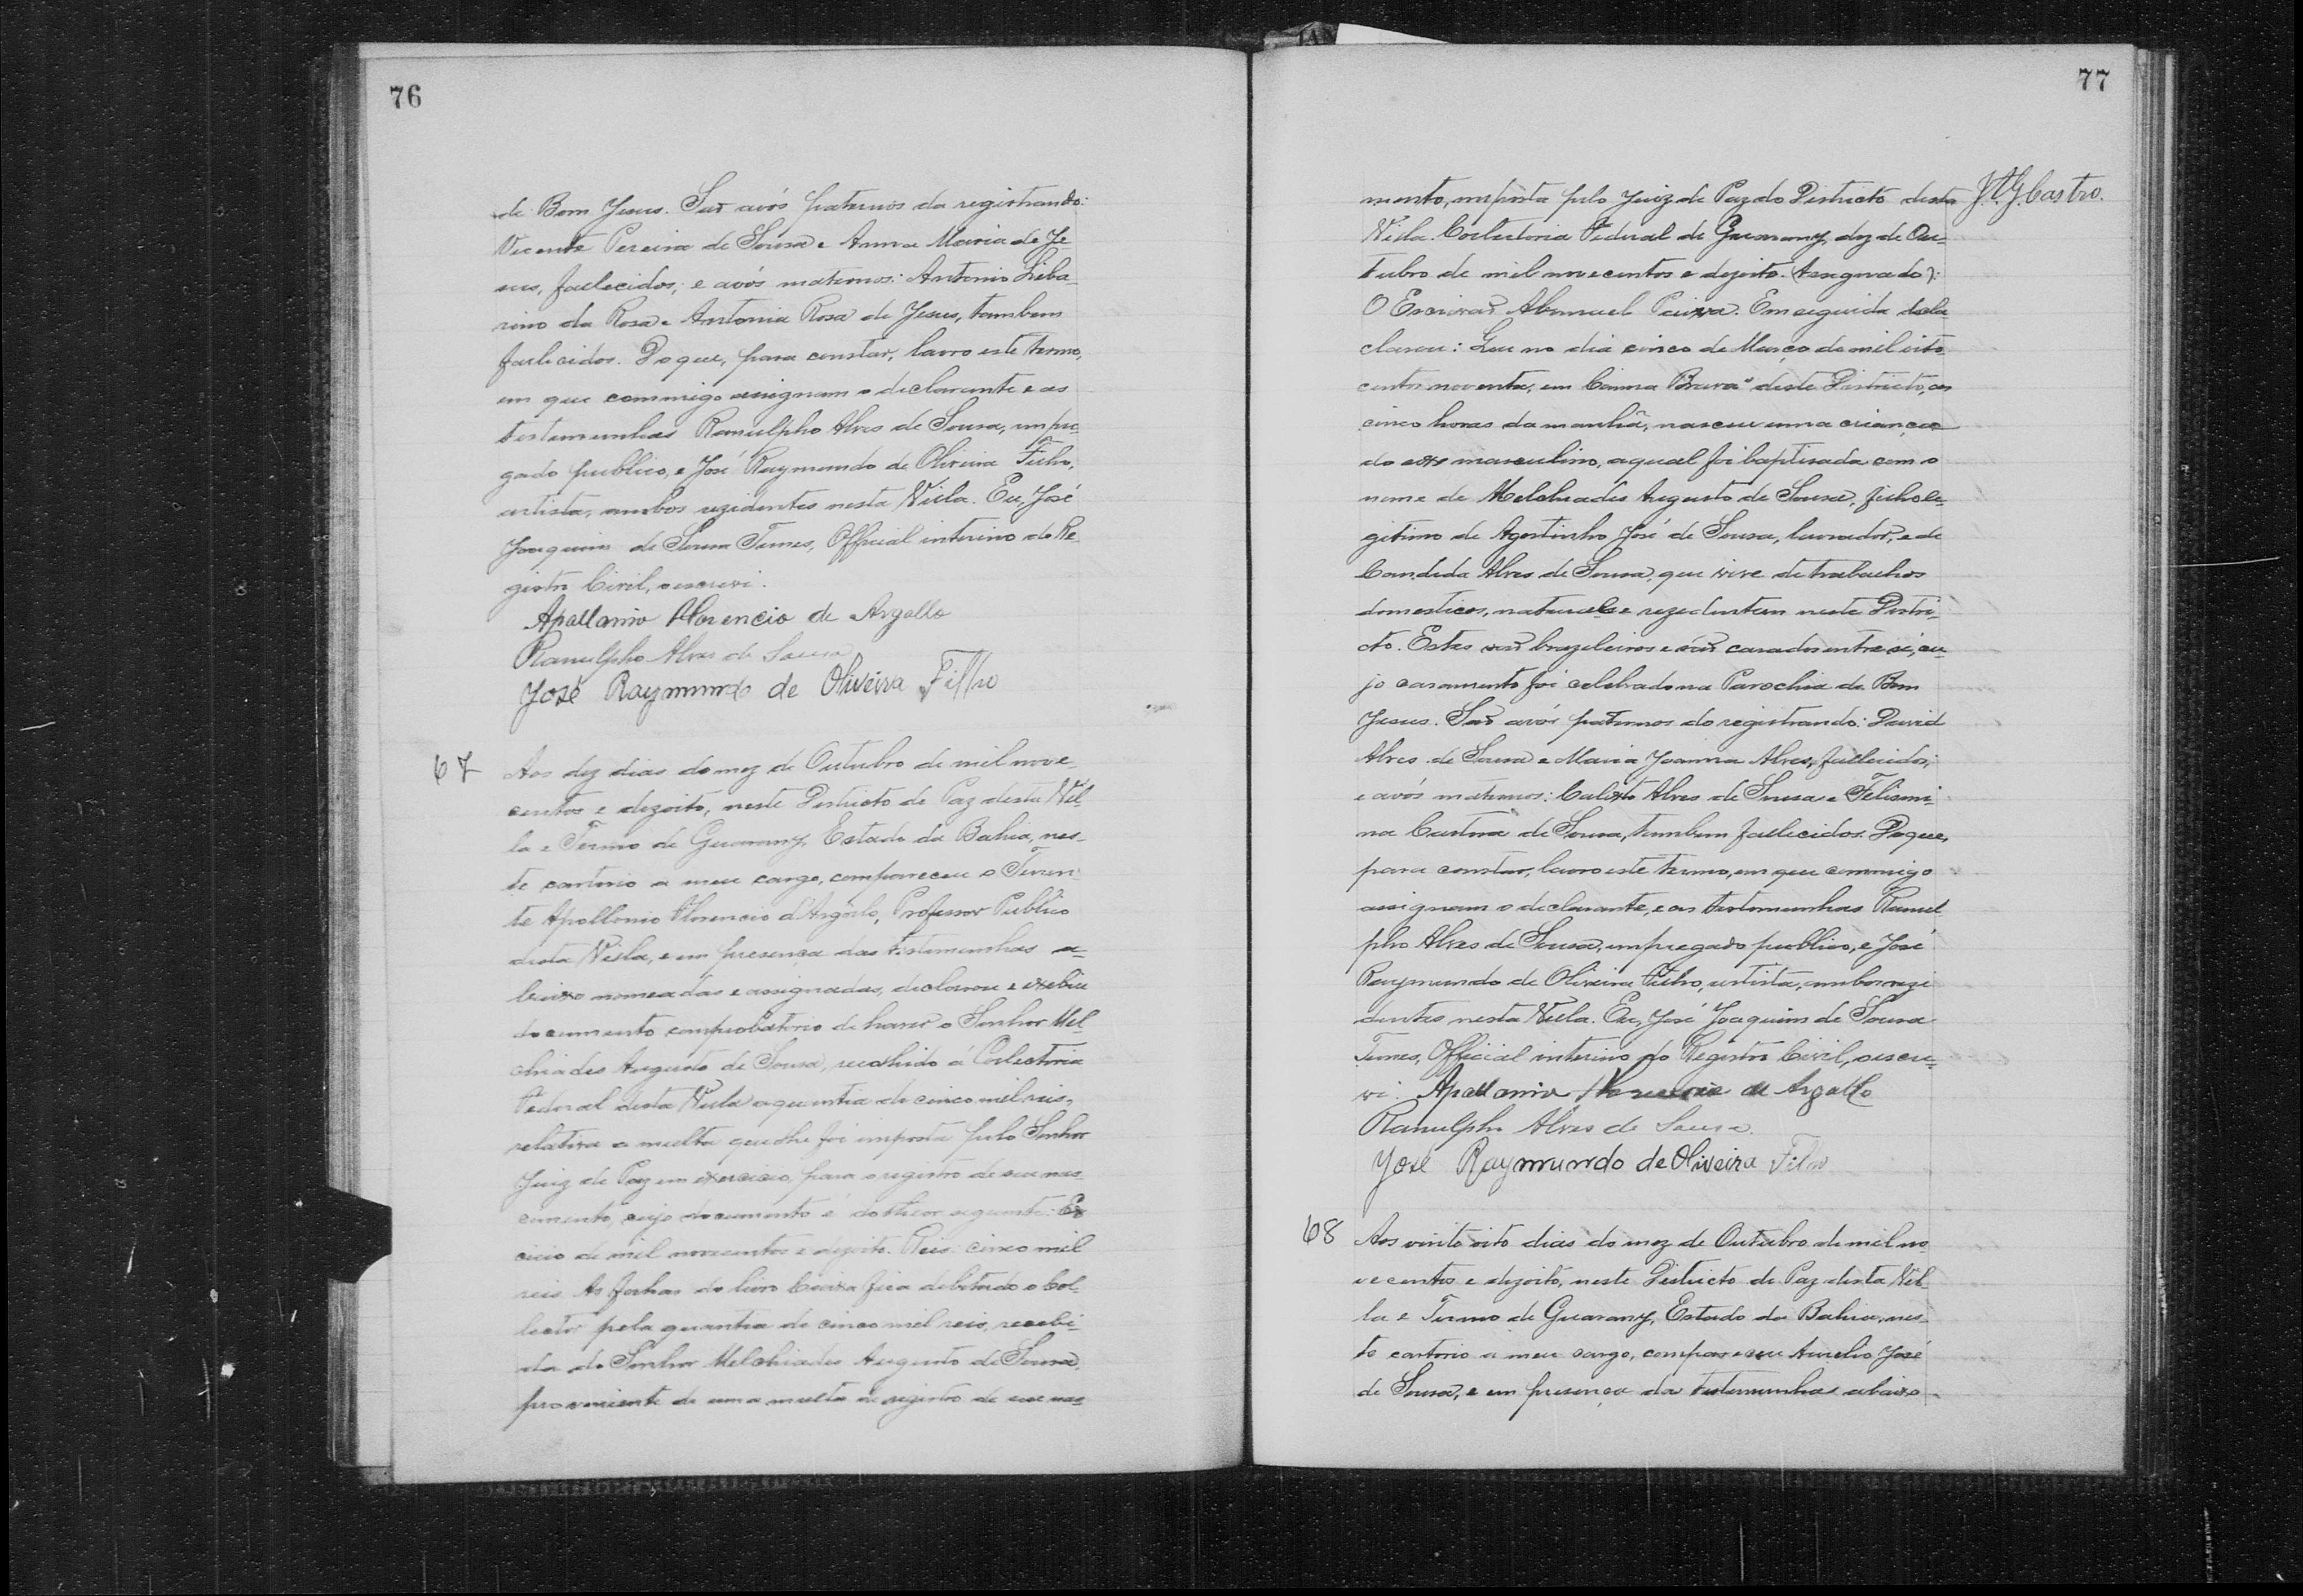 76
de Bom Jesus. São avós paternos da registranda:
Vicente Pereira de Sousa e Anna Maria de Je-
sus, fallecidos; e avós maternos: Antonio Liba-
rino da Rosa e Antonia Rosa de Jesus, tambem
fallecidos. Do que, para constar, lavro este termo,
em que commigo assignam o declarante e as
testemunhas Ranulpho Alves de Sousa, empre-
gado publico, e José Raymundo de Oliveira Filho,
artista, ambos rezidentes nesta Villa. Eu, José
Joaquim de Sousa Tunes, Official interino do Re-
gistro Civil, o escrevi.
Apollonio Florencio de Argollo
Ranulpho Alves de Sousa
José Raymundo de Oliveira Filho
67 Aos dez dias do mez de Outubro de mil nove-
centos e dezoito, neste Districto de Paz desta Vil-
la e Termo de Guarany, Estado da Bahia, nes-
te cartorio a meu cargo, compareceu o Tenen-
te Apollonio Florencio d'Argollo, Professor Publico
desta Villa, e em presença das testemunhas a-
baixo nomeadas e assignadas, declarou e exebiu
documento comprobatorio de haver o Senhor Mel-
chiades Augusto de Sousa, recolhido á Collectoria
Federal desta Villa a quantia de cinco mil reis,
relativa a multa que lhe foi imposta pelo Senhor
Juiz de Paz em exercicio, para o registro de seu nas-
cimento, cujo documento é do theor seguinte: Ex
cicio de mil novecentos e dezoito. Reis: cinco mil
reis. As folhas do livro Caixa fica debitado o Col-
lector pela quantia de cinco mil reis, recebi-
da do Senhor Melchiades Augusto de Sousa,
proveniente de uma multa de registro de seu nas-
77
J. A. G. Castro.
mento, imposta pelo Juiz de Paz do Districto desta
Villa. Collectoria Federal de Guarany, dez de Ou-
tubro de mil novecentos e dezoito. (Assignado):
O Escrivão Abmael Peixra. Em seguida de
clarou: Que no dia cinco de Março de mil oito
centos noventa, em Canna Brava" deste Districto, as
cinco horas da manhã, nasceu uma criança
do sexo masculino, a qual foi baptisada com o
nome de Melchiades Augusto de Sousa, filho le-
gitimo de Agostinho José de Sousa, lavrador, e de
Candida Alves de Sousa, que vive de trabalhos
domesticos, naturaes e rezidentes neste Distri-
cto. Estes são brazileiros e são casados entre si, cu-
jo casamento foi celebrado na Parochia de Bom
Jesus. São avós paternos do registrando: David
Alves de Sousa e Maria Joanna Alves, fallecidos;
e avós maternos: Calixto Alves de Sousa e Felismi-
na Castora de Sousa, tambem fallecidos. Do que,
para constar, lavro este termo, em que commigo
assignam o declarante, e as testemunhas Ranul
pho Alves de Sousa, empregado publico, e José
Raymundo de Oliveira Filho, artista, ambos rezi
dentes nesta Villa. Eu, José Joaquim de Sousa
Tunes, Official interino do Registro Civil, o escre-
vi. Apollonio Florencio de Argollo
Ranulpho Alves de Sousa.
José Raymundo de Oliveira Filho
68 Aos vinte oito dias do mez de Outubro de mil no-
vecentos e dezoito, neste Districto de Paz desta Vil-
la e Termo de Guarany, Estado da Bahia, nes-
te cartorio a meu cargo, compareceu Aurelio José
de Sousa, e em presença das testemunhas abaixo